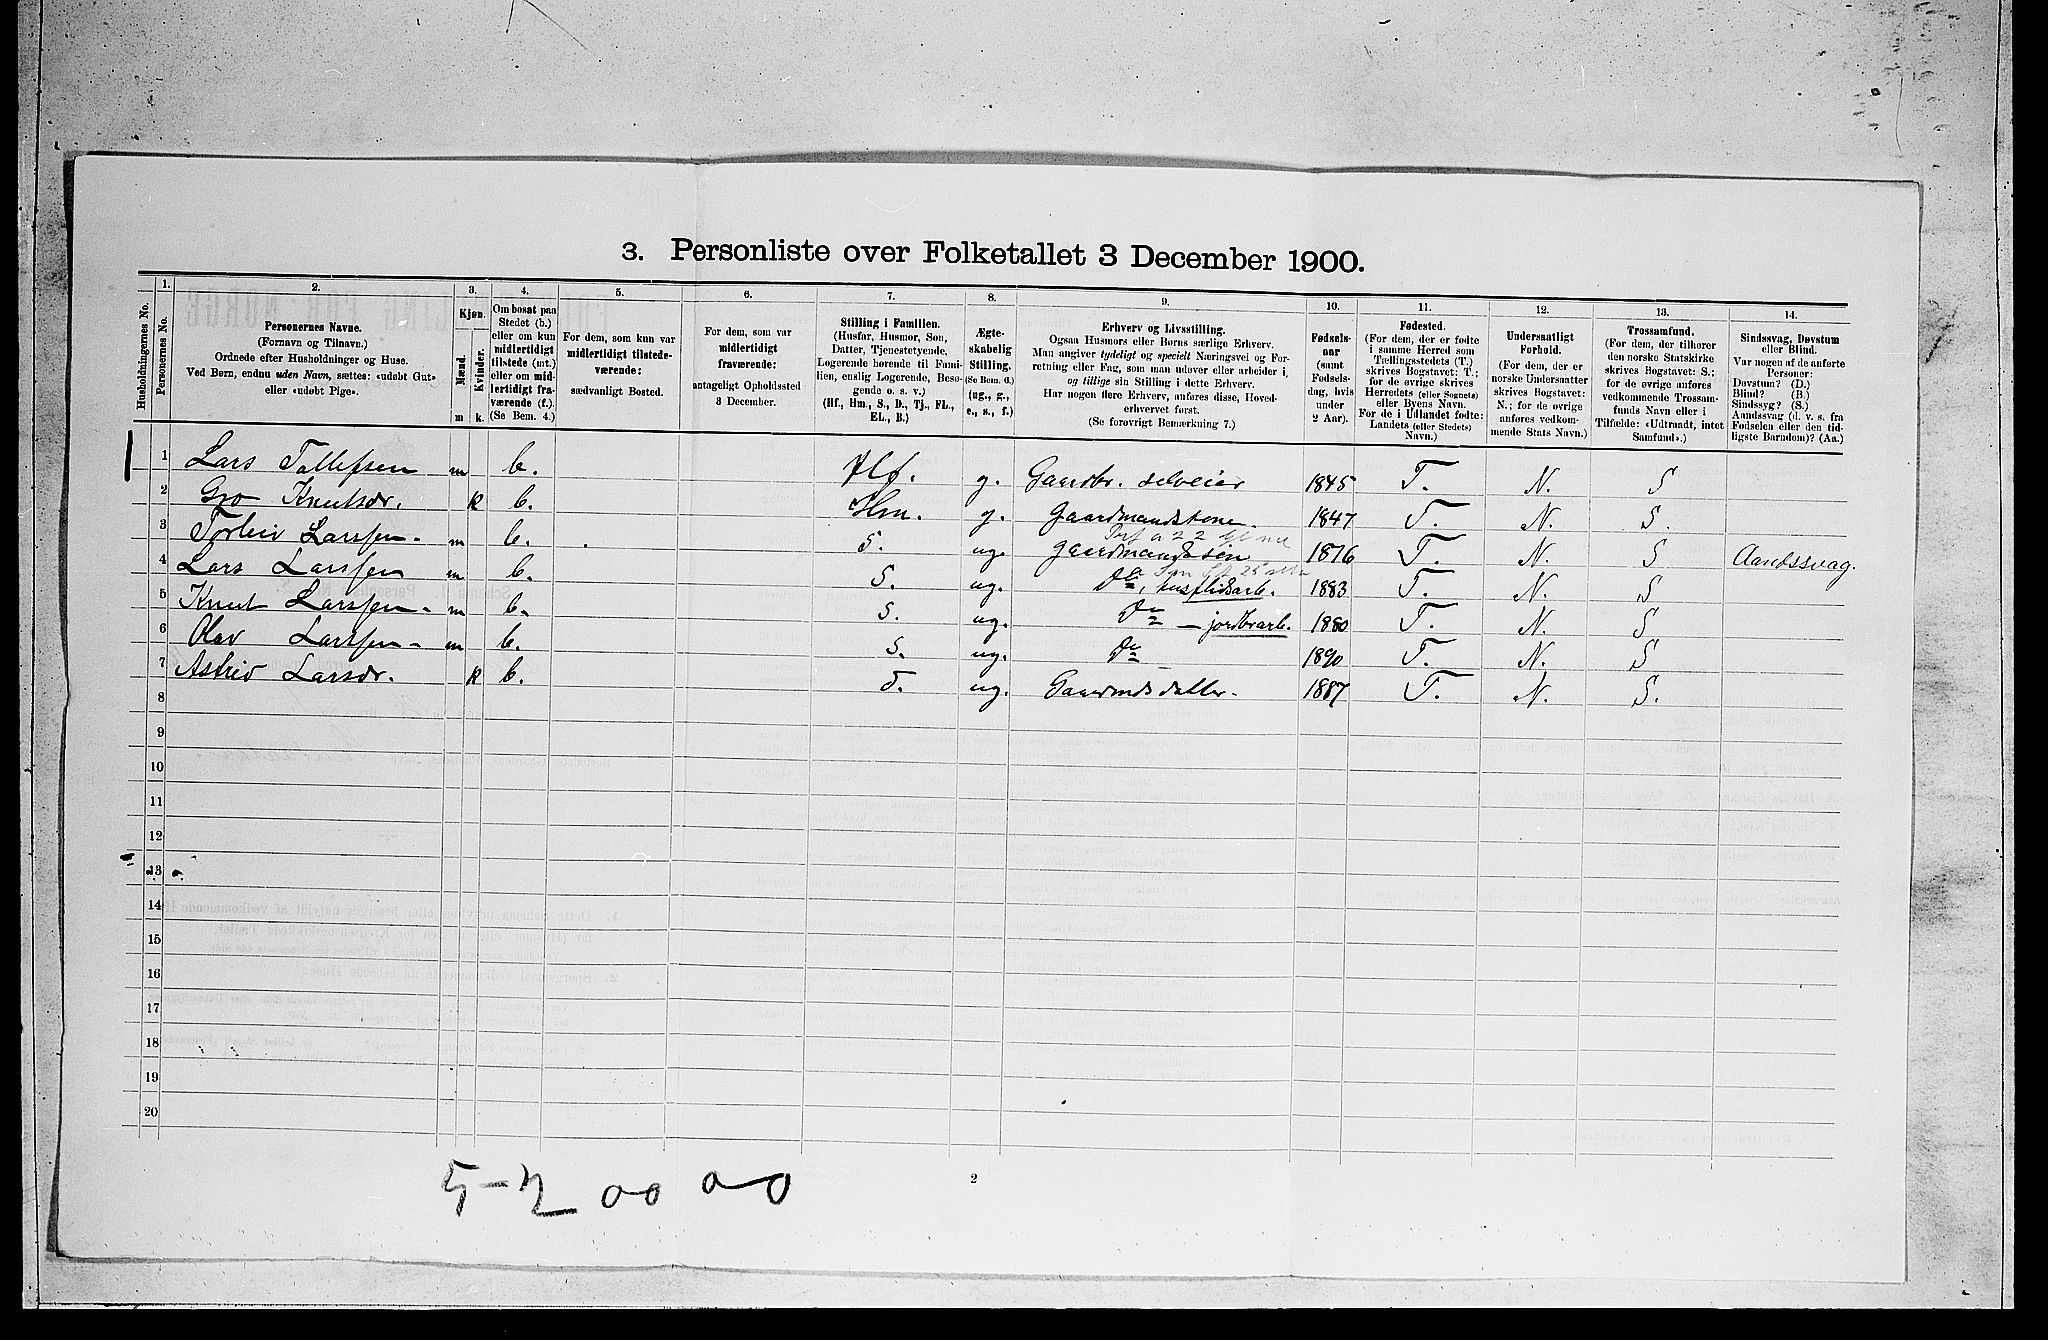 3. Personliste over Folketallet 3 December 1900.
Husholdningernes No.
1.
Personernes No.
2.
Personernes Navne.
(Fornavn og Tilnavn.)
Ordnede efter Husholdninger og Huse.
Ved Børn, endnu uden Navn, sættes: «udøbt Gut»
eller «udøbt Pige».
3.
Kjøn.
Mænd.
Kvinder.
m k.
4.
Om bosat paa
Stedet (b.)
eller om kun
midlertidigt
tilstede (mt.)
eller om mid-
lertidigt fra-
værende (f.).
(Se Bem. 4.)
5.
For dem, som kun var
midlertidigt tilstede-
værende:
sædvanligt Bosted.
6.
For dem, som var
midlertidigt
fraværende:
antageligt Opholdssted
3 December.
7.
Stilling i Familien.
(Husfar, Husmor, Søn,
Datter, Tjenestetyende,
Logerende hørende til Fami-
lien, enslig Logerende, Besø-
gende o. s. v.)
(Hf., Hm., S., D., Tj., FL.,
EL., B.)
8.
Ægte-
skabelig
Stilling.
(Se Bem. 6.)
(ug., g.,
e., s., f.)
9.
Erhverv og Livsstilling.
Ogsaa Husmors eller Børns særlige Erhverv.
Man angiver tydeligt og specielt Næringsvei og For-
retning eller Fag, som man udøver eller arbeider i,
og tillige sin Stilling i dette Erhverv.
Har nogen flere Erhverv, anføres disse, Hoved-
erhvervet først.
(Se forøvrigt Bemærkning 7.)
10.
Fødsels-
aar
(samt
Fødsels-
dag, hvis
under
2 Aar).
11.
Fødested.
(For dem, der er fødte
i samme Herred som
Tællingsstedets (T.)
skrives Bogstavet: T.;
for de øvrige skrives
Herredets (eller Sognets)
eller Byens Navn.
For de i Udlandet fødte:
Landets (eller Stedets)
Navn.)
12.
Undersaatligt
Forhold.
(For dem, der er
norske Undersaatter
skrives Bogstavet:
N.; for de øvrige
anføres vedkom-
mende Stats Navn.)
13.
Trossamfund.
(For dem, der tilhører
den norske Statskirke
skrives Bogstavet: S.;
for de øvrige anføres
vedkommende Trossam-
funds Navn eller i
Tilfælde: «Udtraadt, intet
Samfund».)
14.
Sindssvag, Døvstum
eller Blind.
Var nogen af de anførte
Personer:
Døvstum? (D.)
Blind? (B.)
Sindssyg? (S.)
Aandssvag (d. v. s. fra
Fødselen eller den tid-
ligste Barndom)? (Aa.)
1 Lars Tollefsen m b. Hf. g. Gaardbr. selveier 1845 T. N. S
2 Gro Knutsdr. k b. Hm. g. Gaardmandskone. 1847 T. N. S.
3 Torleiv Larssen. m b. S. ug. gaardmandssøn 1876 T. N. S Aandssvag.
4 Lars Larssen m b. S. ug. Do, husflidsarb. 1883 T. N. S
5 Knut Larssen. m b. S. ug. Do — jordbrarb. 1880 T. N. S
6 Olav Larssen. m b. S. ug. Do 1890 T. N. S
7 Astrid Larsdr. k b. D. ug. Gaardmdsdatter. 1887 T. N. S.
8
9
10
11
12
13
14
15
16
17
18
19
20
5-2 00 00
2